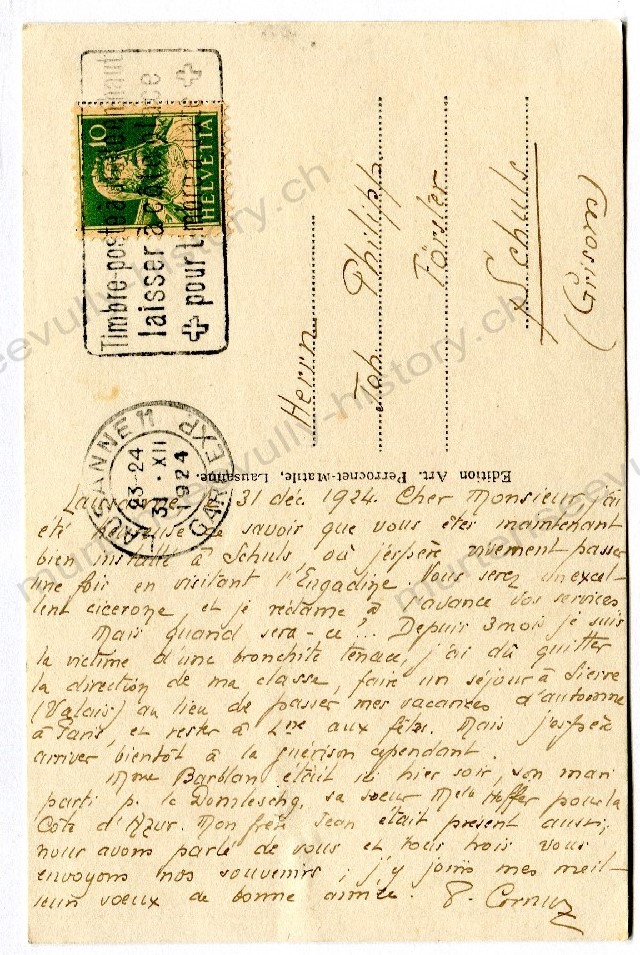 Timbre-poste à
laisser à
pour timbre à date
10
HELVETIA
LAUSANNE 11
23-24
31.XII
1924
GARE EXP
Herrn
Joh. Philipp
Förster
Schuls
Edition Art. Perrochet-Matile, Lausanne.
31 déc 1924. Cher Monsieur j'ai
été heureuse de savoir que vous êtes maintenant
bien installé à Schuls où j'espère vivement passer
une fois en visitant l'Engadine. Vous serez un excel-
lent cicerone, et je réclame à l'avance vos services
Mais quand sera-ce?... Depuis 3 mois je suis
la victime d'une bronchite tenace, j'ai dû quitter
la direction de ma classe, faire un séjour à Sierre
(Valais) au lieu de passer mes vacances d'automne
à Paris, et rester à Lne aux fêtes. Mais j'espère
arriver bientôt à la guérison cependant.
Mme Barblan était ici hier soir, son mari
parti p. le Domleschg, sa soeur Melle Hoffer pour la
Côte d'Azur. Mon frère Jean était présent aussi,
nous avons parlé de vous et tous trois vous
envoyons nos souvenirs; j'y joins mes meil-
leurs voeux de bonne année. P. Cornuz
murtenseevully-history.ch